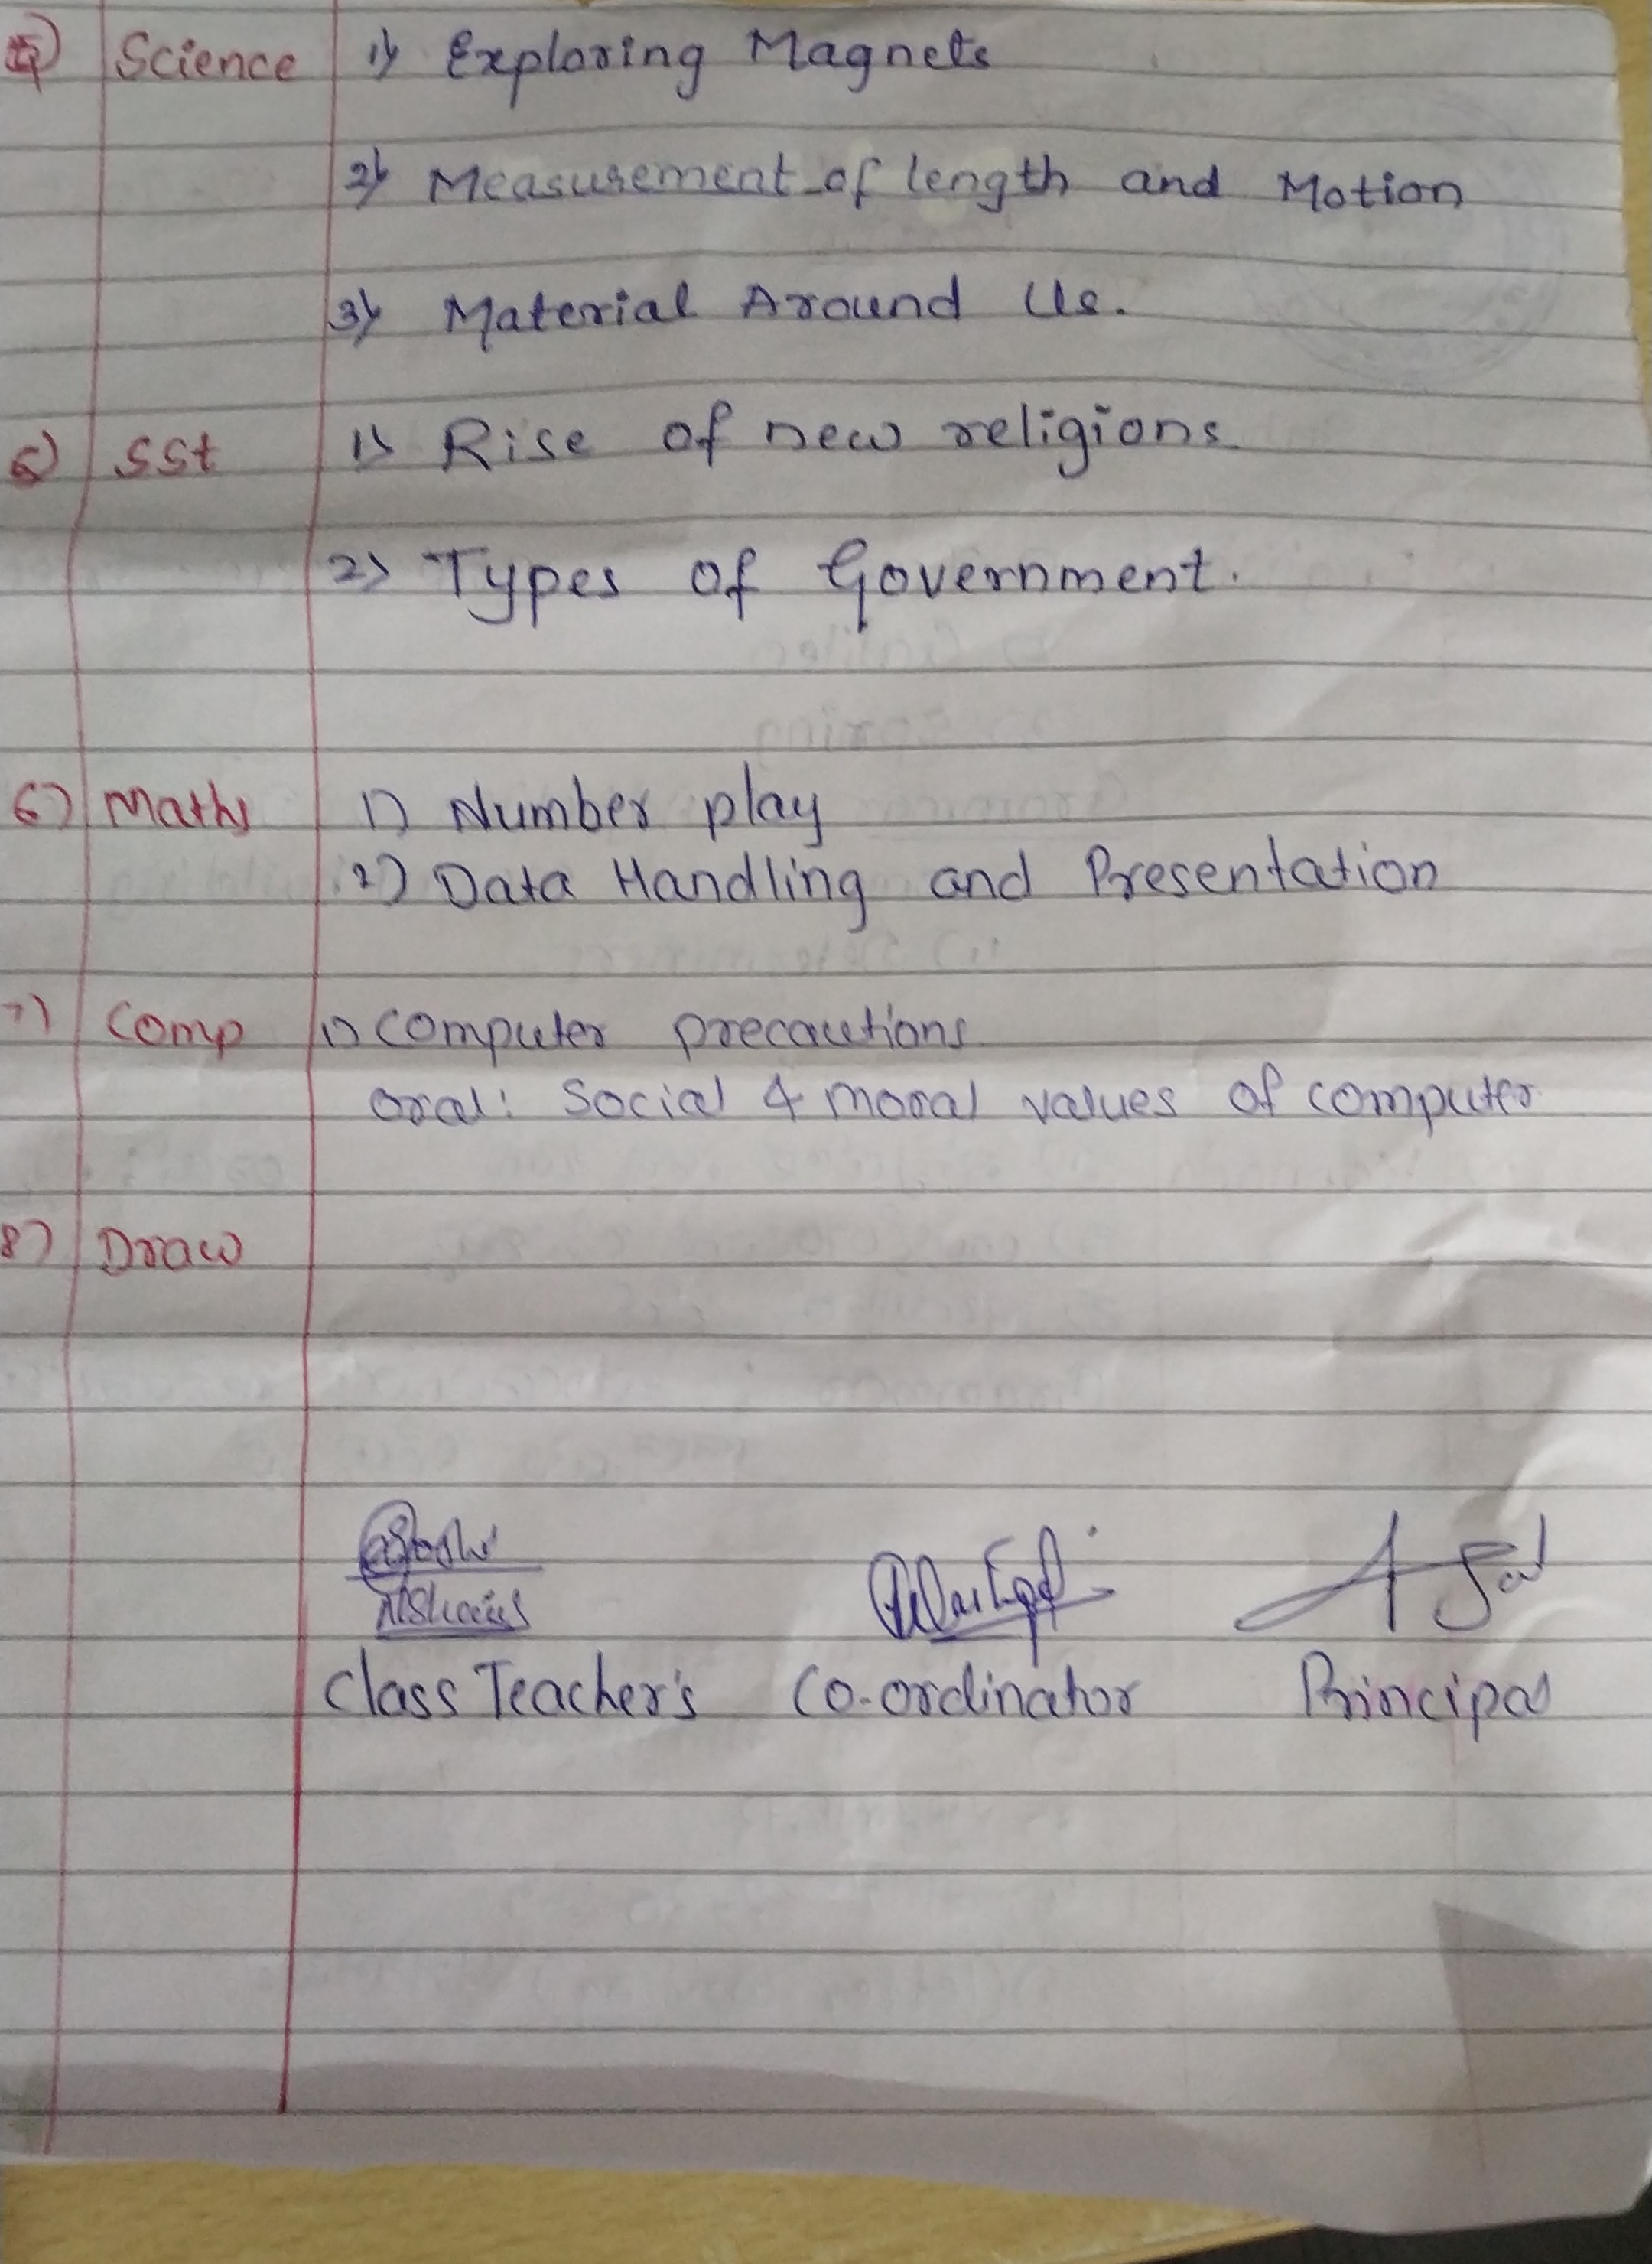 Science 1) Exploring Magnets
2) Measurement of length and Motion
3) Material Around Us.
SSt 1) Rise of new religions
2) Types of Government.
6) Maths 1) Number play
2) Data Handling and Presentation
7) Comp 1) Computer precautions
oral: Social & moral values of computer
8) Draw
Class Teacher's Co-ordinator Principal